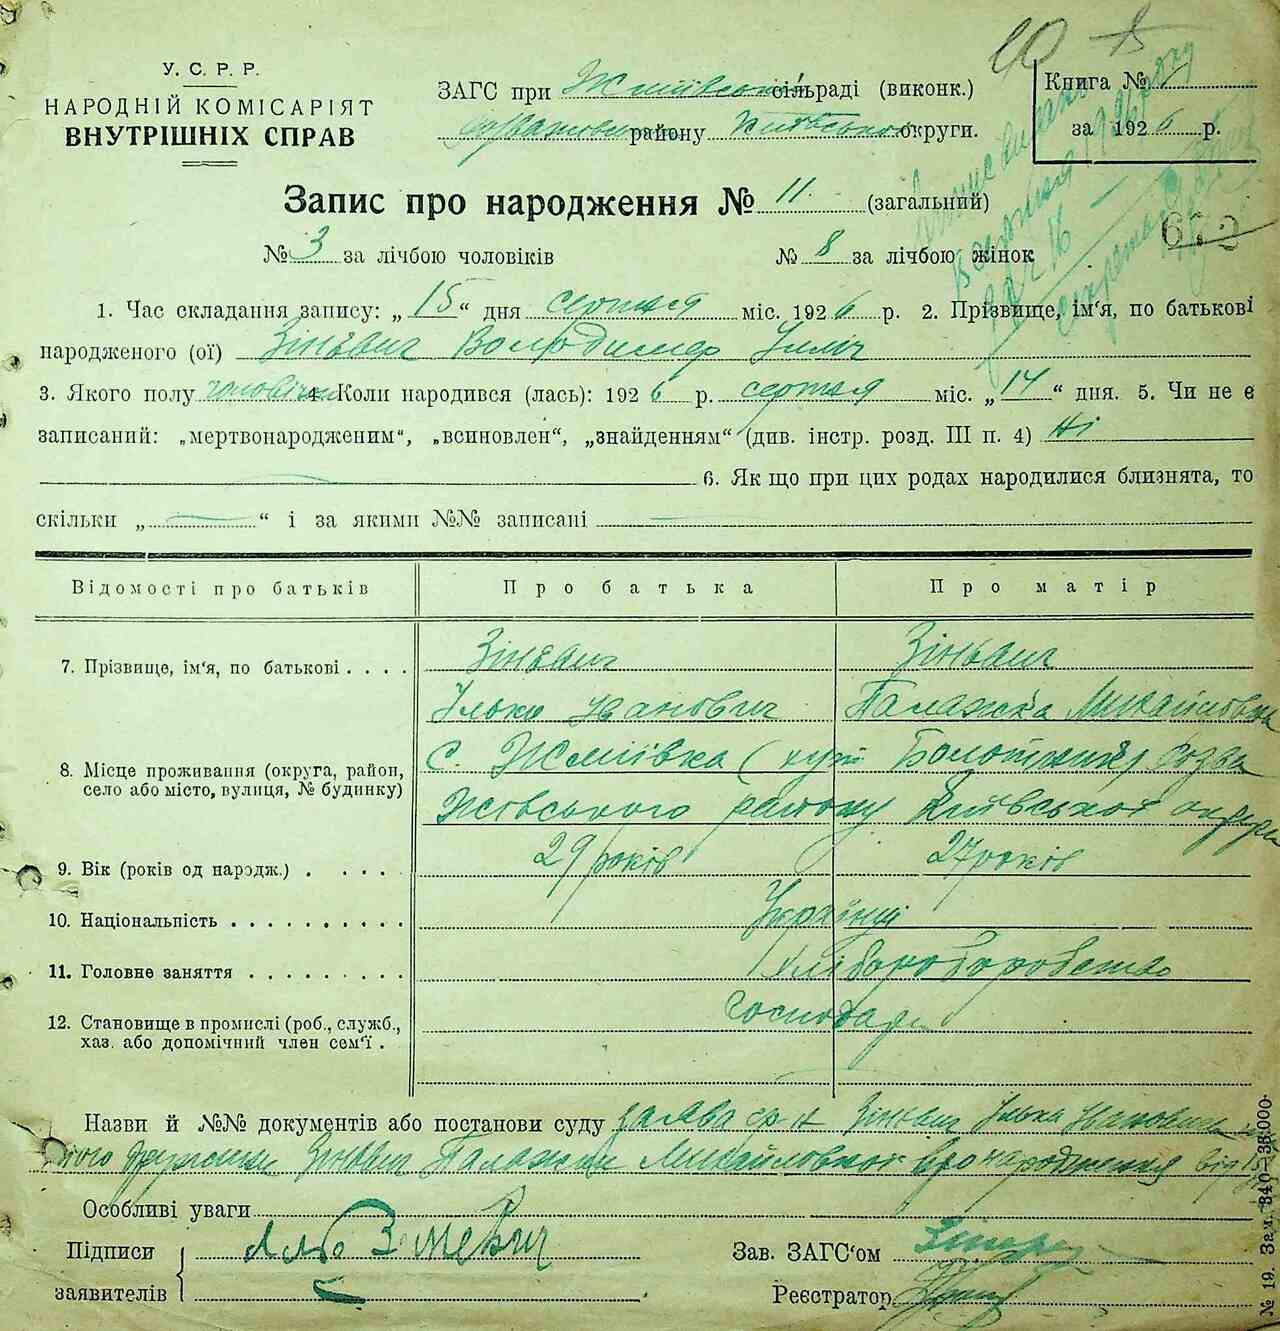 У. С. Р. Р.
НАРОДНІЙ КОМІСАРІЯТ
ВНУТРІШНІХ СПРАВ
ЗАГС при Жміївській сільраді (виконк.)
району Київської округи.
Книга №
за 1926 р.
Запис про народження № 11 (загальний)
672
№ 3 за лічбою чоловіків № 8 за лічбою жінок
1. Час складання запису: „15“ дня серпня міс. 1926 р. 2. Прізвище, ім‘я, по батькові
народженого (ої) Зінєвич Володимер Ілліч
3. Якого полу чоловічи 4. Коли народився (лась): 1926 р. серпня міс. „14“ дня. 5. Чи не є
записаний: „мертвонародженим“, „всиновлен“, „знайденням“ (див. інстр. розд. III п. 4) Ні
6. Як що при цих родах народилися близнята, то
скільки „ “ і за якими №№ записані
Відомості про батьків Про батька Про матір
7. Прізвище, ім‘я, по батькові Зінєвич Зінєвич
Ілько Іванович Палажка Михайловна
8. Місце проживання (округа, район, село або місто, вулиця, № будинку) с. Жміївка (кут
району Київської округи
9. Вік (років од народж.) 29 років 27 років
10. Національність Українці
11. Головне заняття хліборобство
12. Становище в промислі (роб., служб., хаз. або допомічний член сем‘ї. Господарі
Назви й №№ документів або постанови суду заява гр-н Зінєвич Ілька Івановича
його дружини Зінєвич Палажки Михайловної про народження від
Особливі уваги
Підписи заявителів Зіневич
Зав. ЗАГС‘ом
Реєстратор
№ 19. Зам. 340—38.000